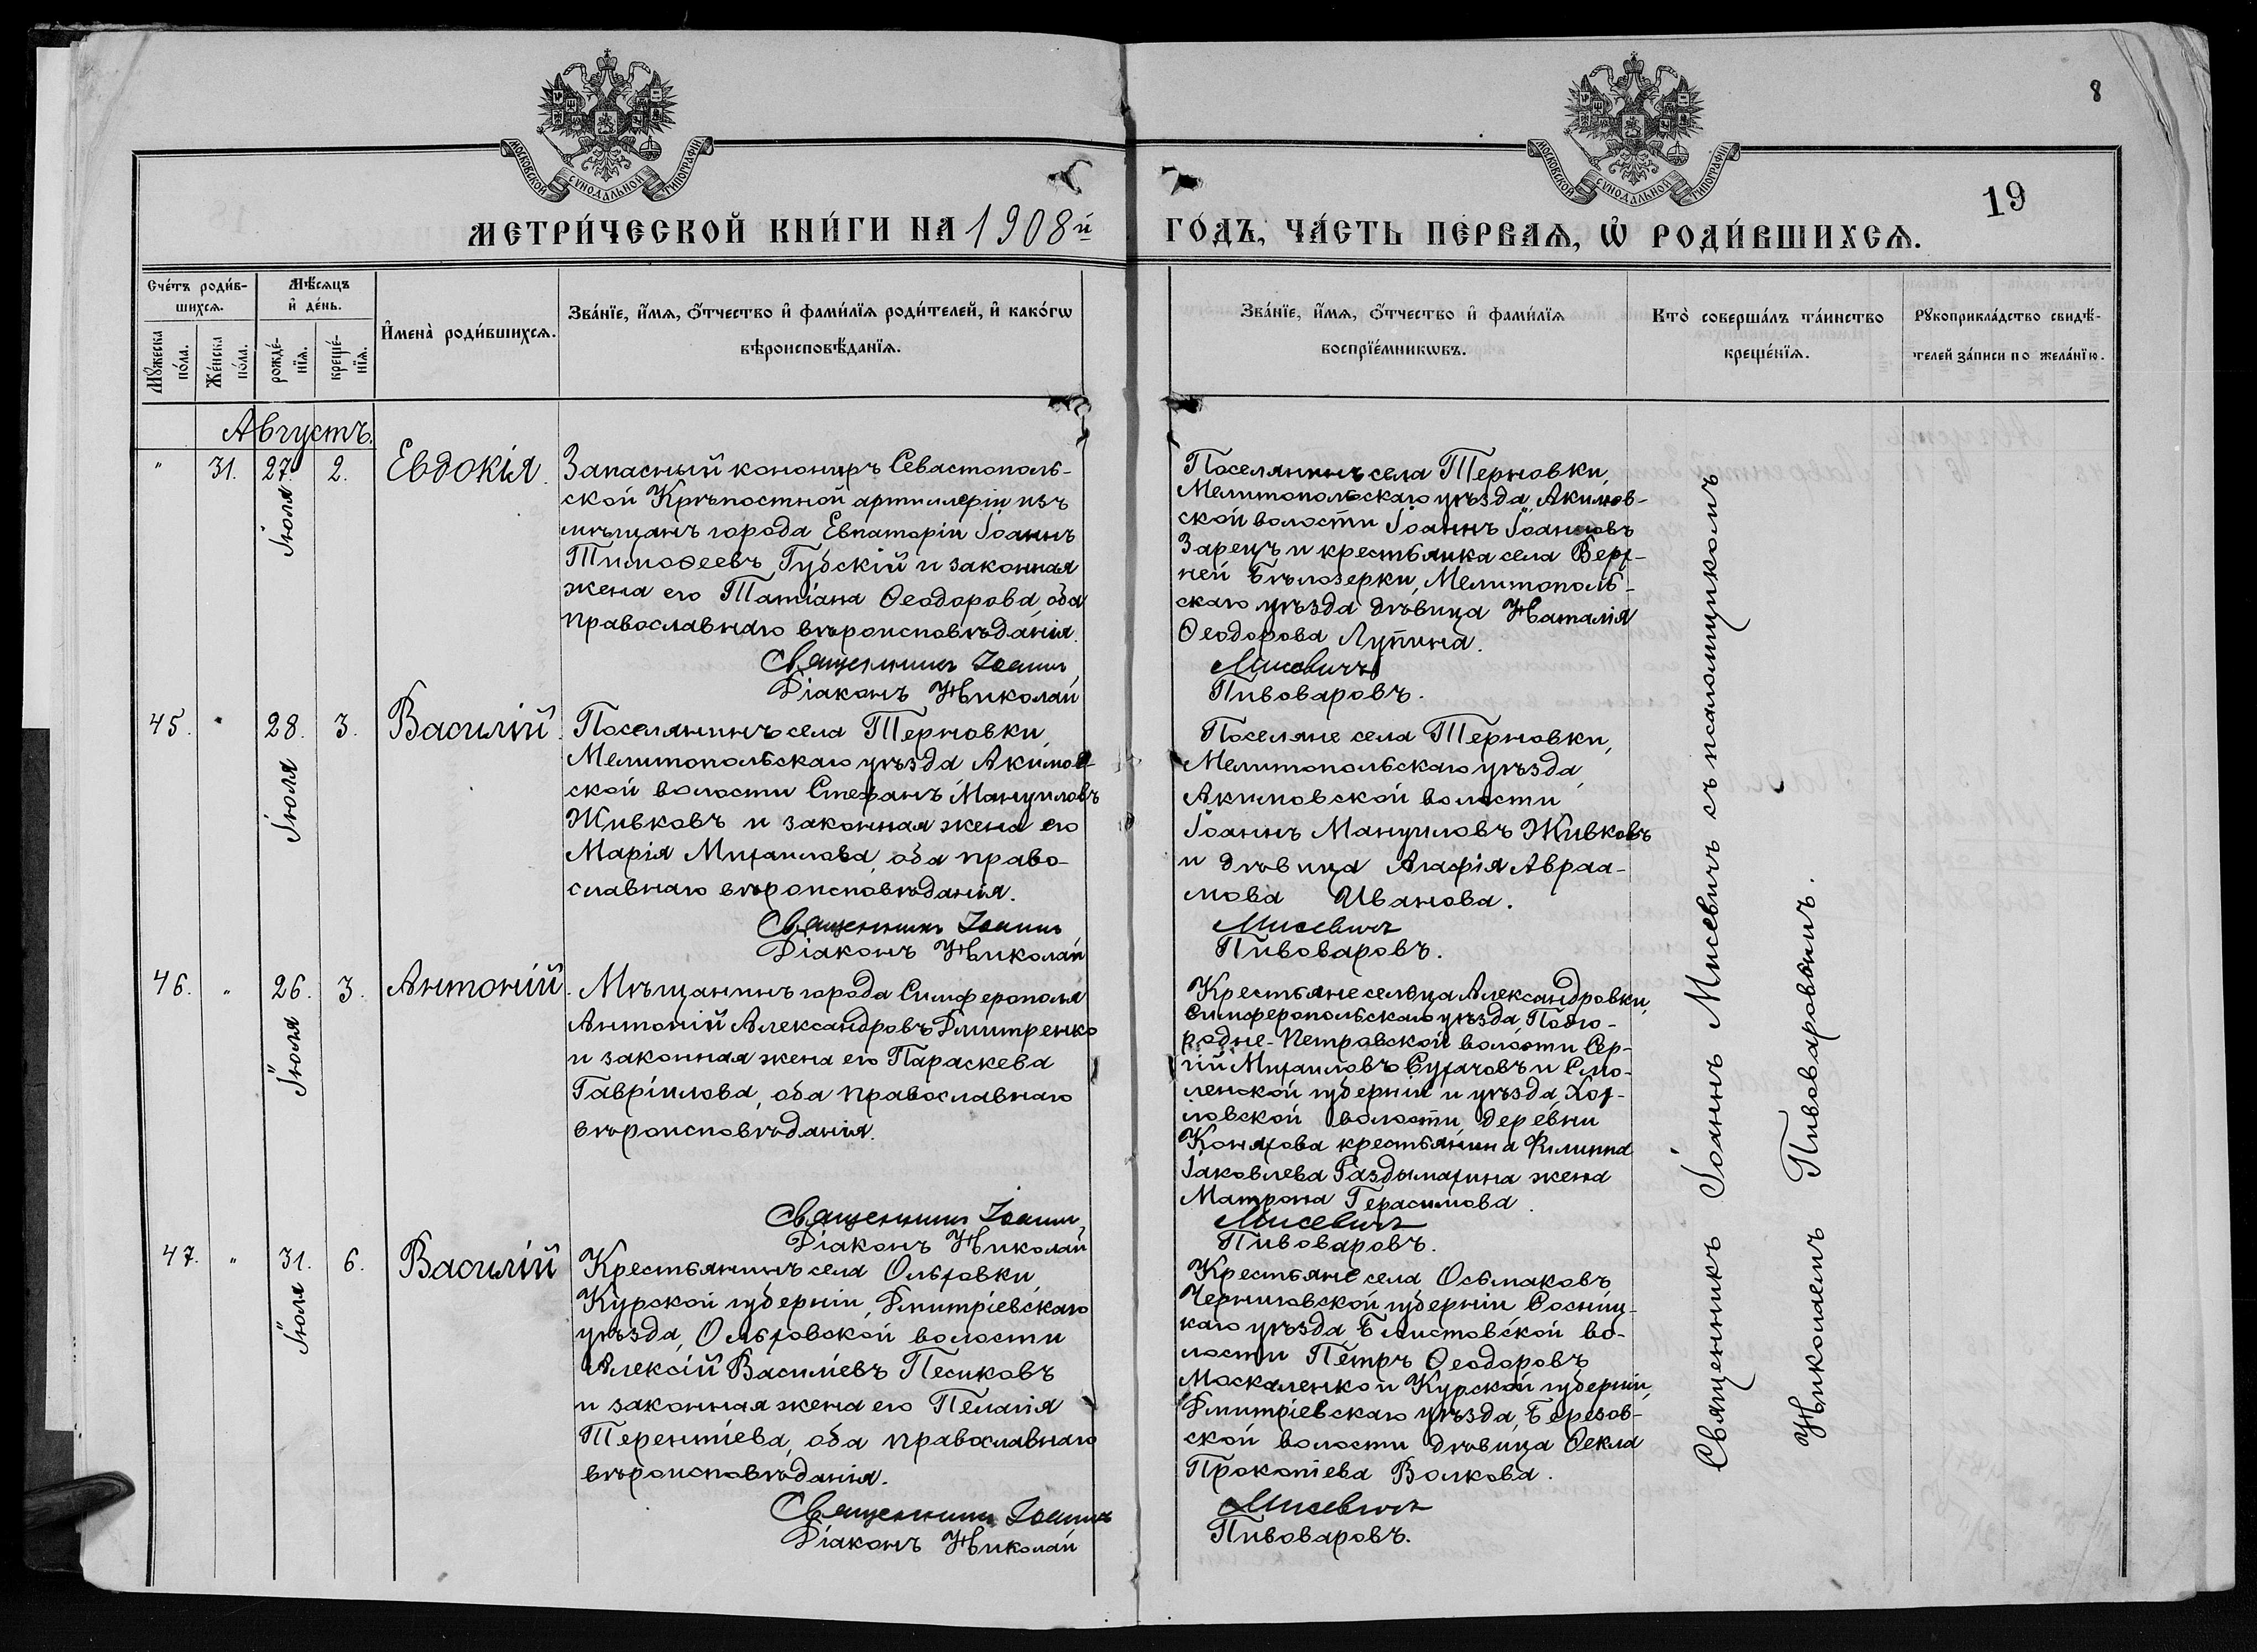 8
19
МОСКОВСКОЙ СѴНОДАЛЬНОЙ ТИПОГРАФІИ
МОСКОВСКОЙ СѴНОДАЛЬНОЙ ТИПОГРАФІИ
МЕТРИ́ЧЕСКОЙ КНИ́ГИ НА 1908й
ГО́ДЪ, ЧА́СТЬ ПЕ́РВАѦ, Ѡ҆ РОДИ́ВШИХСѦ.
Сче́тъ роди́в-
шихсѧ.
Мꙋ́жеска по́ла.
Же́нска по́ла.
Мѣ́сѧцъ
и҆ де́нь.
рожде́-
нїѧ.
креще́-
нїѧ.
И҆мена̀ роди́вшихсѧ.
Зва́нїе, и҆́мѧ, ѻ҆́тчество и҆ фами́лїѧ роди́телей, и҆ како́гѡ
вѣроисповѣ́данїѧ.
Зва́нїе, и҆́мѧ, ѻ҆́тчество и҆ фами́лїѧ
воспрїе́мникѡвъ.
Кто̀ соверша́лъ та́инство
креще́нїѧ.
Рꙋкоприкла́дство свидѣ́-
телей за́писи по жела́нїю.
Августъ.
" 31. 27. Іюля 2. Евдокія.
Запасный конониръ Севастополь-
ской Крѣпостной артиллеріи изъ
мѣщанъ города Евпаторіи Іоаннъ
Тимоѳеевъ Губскій и законная
жена его Татіана Ѳеодорова, оба
православнаго вѣроисповѣданія.
Священникъ Іоаннъ
Діаконъ Николай
Поселянинъ села Терновки,
Мелитопольскаго уѣзда, Акимов-
ской волости Іоаннъ Іоанновъ
Зарецъ и крестьянка села Верх-
ней Бѣлозерки, Мелитополь-
скаго уѣзда дѣвица Наталія
Ѳеодорова Лупина.
Мисевичъ
Пивоваровъ.
45. " 28. Іюля 3. Василій.
Поселянинъ села Терновки,
Мелитопольскаго уѣзда Акимов-
ской волости Стефанъ Мануиловъ
Живковъ и законная жена его
Марія Михаилова, оба право-
славнаго вѣроисповѣданія.
Священникъ Іоаннъ
Діаконъ Николай
Поселяне села Терновки,
Мелитопольскаго уѣзда,
Акимовской волости
Іоаннъ Мануиловъ Живковъ
и дѣвица Агафія Авраа-
мова Иванова.
Мисевичъ
Пивоваровъ.
46. " 26. Іюля 3. Антоній.
Мѣщанинъ города Симферополя
Антоній Александровъ Дмитренко
и законная жена его Параскева
Гавріилова, оба православнаго
вѣроисповѣданія.
Священникъ Іоаннъ
Діаконъ Николай
Крестьяне сельца Александровки,
Симферопольскаго уѣзда, Подго-
родне-Петровской волости Сер-
гій Михаиловъ Сухачовъ и Смо-
ленской губерніи и уѣзда, Хох-
ловской волости, деревни
Коняхова крестьянина Филиппа
Іаковлева Раздымахина жена
Матрона Герасимова.
Мисевичъ
Пивоваровъ.
47. " 31. Іюля 6. Василій
Крестьянинъ села Ольховки,
Курской губерніи, Дмитріевскаго
уѣзда, Ольховской волости
Алексій Василіевъ Песиковъ
и законная жена его Пелагія
Терентіева, оба православнаго
вѣроисповѣданія.
Священникъ Іоаннъ
Діаконъ Николай
Крестьяне села Осьмаковъ
Черниговской губерніи Сосниц-
каго уѣзда, Блистовской во-
лости Петръ Ѳеодоровъ
Москаленко и Курской губерніи,
Дмитріевскаго уѣзда, Березов-
ской волости дѣвица Ѳекла
Прокопіева Волкова.
Мисевичъ
Пивоваровъ.
Священникъ Іоаннъ Мисевичъ съ псаломщикомъ
Николаемъ Пивоваровымъ.